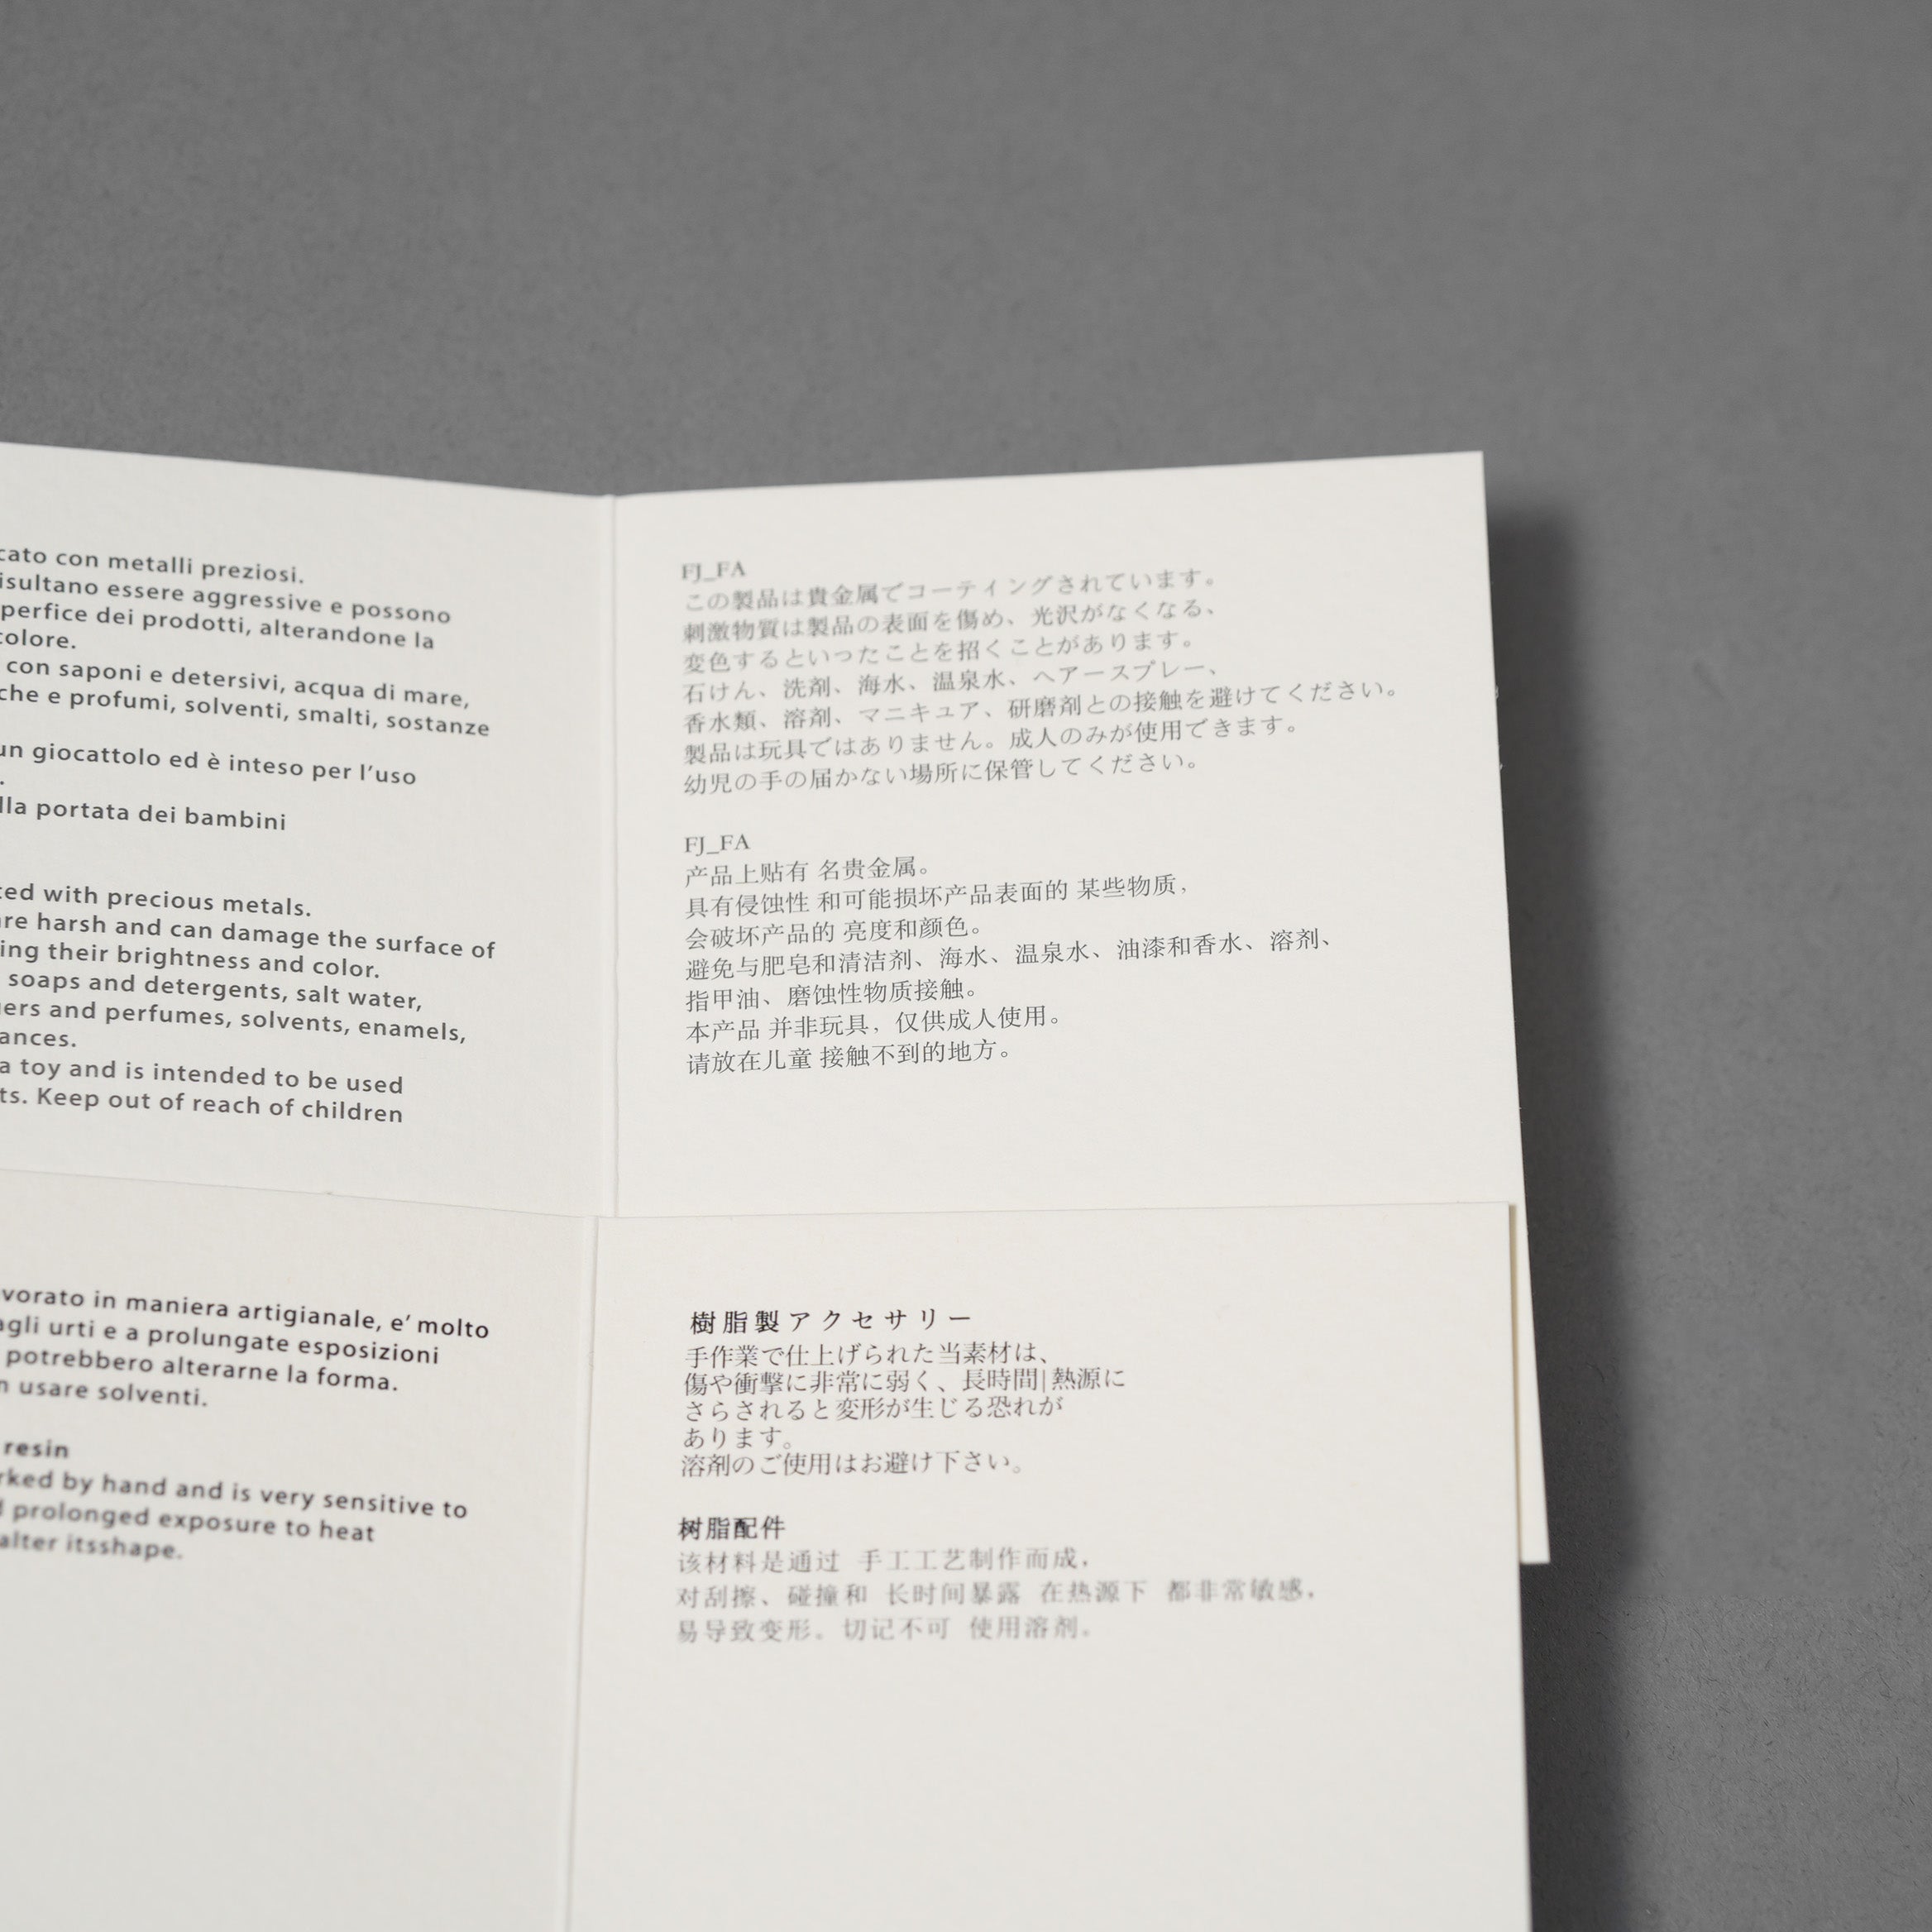 cato con metalli preziosi.
isultano essere aggressive e possono
perfice dei prodotti, alterandone la
colore.
con saponi e detersivi, acqua di mare,
che e profumi, solventi, smalti, sostanze
un giocattolo ed è inteso per l'uso
.
lla portata dei bambini
ted with precious metals.
are harsh and can damage the surface of
ing their brightness and color.
soaps and detergents, salt water,
ers and perfumes, solvents, enamels,
ances.
a toy and is intended to be used
ts. Keep out of reach of children
FJ_FA
この製品は貴金属でコーティングされています。
刺激物質は製品の表面を傷め、光沢がなくなる、
変色するといったことを招くことがあります。
石けん、洗剤、海水、温泉水、ヘアースプレー、
香水類、溶剤、マニキュア、研磨剤との接触を避けてください。
製品は玩具ではありません。成人のみが使用できます。
幼児の手の届かない場所に保管してください。
FJ_FA
产品上贴有 名贵金属。
具有侵蚀性 和可能损坏产品表面的 某些物质，
会破坏产品的 亮度和颜色。
避免与肥皂和清洁剂、海水、温泉水、油漆和香水、溶剂、
指甲油、磨蚀性物质接触。
本产品 并非玩具，仅供成人使用。
请放在儿童 接触不到的地方。
vorato in maniera artigianale, e' molto
agli urti e a prolungate esposizioni
potrebbero alterarne la forma.
n usare solventi.
resin
rked by hand and is very sensitive to
d prolonged exposure to heat
alter itsshape.
樹脂製アクセサリー
手作業で仕上げられた当素材は、
傷や衝撃に非常に弱く、長時間|熱源に
さらされると変形が生じる恐れが
あります。
溶剤のご使用はお避け下さい。
树脂配件
该材料是通过 手工工艺制作而成，
对刮擦、碰撞和 长时间暴露 在热源下 都非常敏感，
易导致变形。切记不可 使用溶剂。